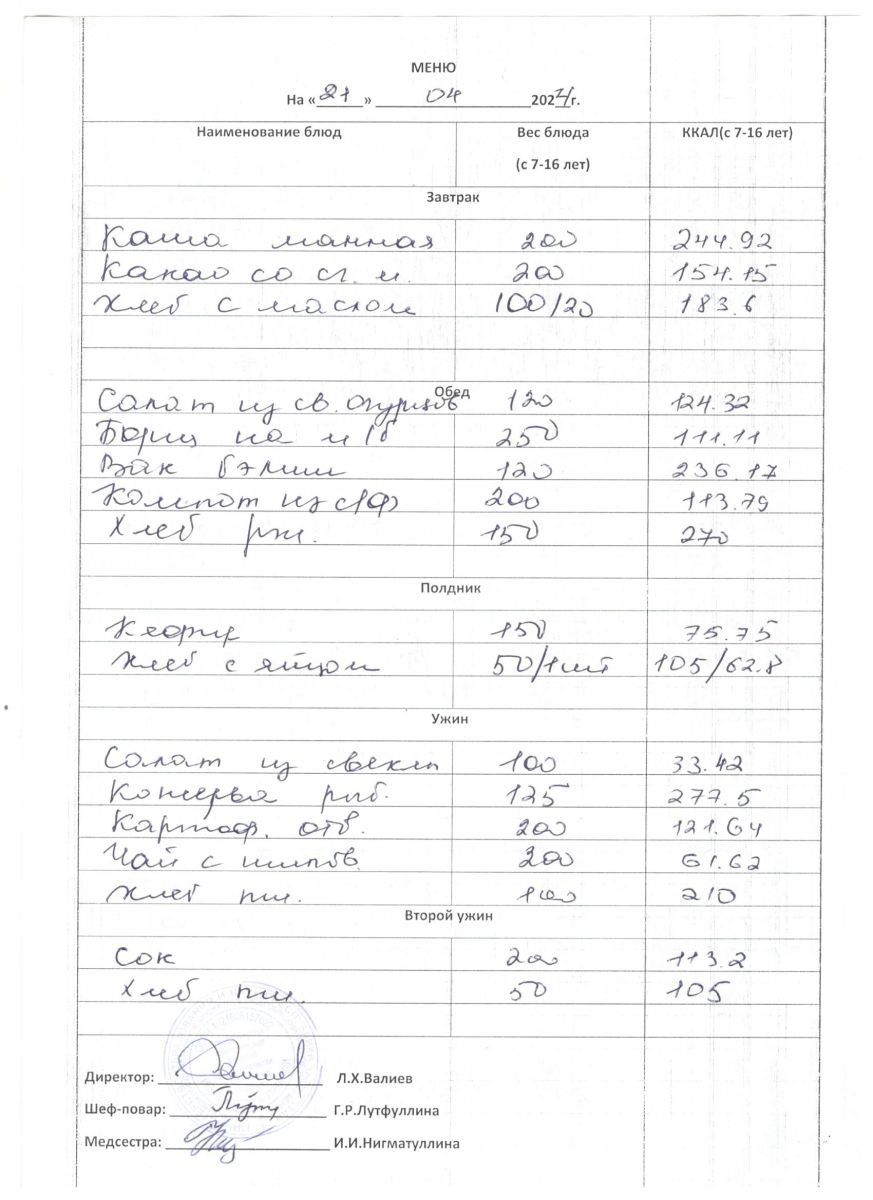 МЕНЮ
На « 21 » 04 2024г.
Наименование блюд Вес блюда (с 7-16 лет) ККАЛ(с 7-16 лет)
Завтрак
Каша манная 200 244.92
Какао со сг. м. 200 154.15
Хлеб с маслом 100/20 183.6
Обед
Салат из св. огурцов 120 124.32
Борщ на м/б 250 111.11
Вак бэлиш 120 236.17
Компот из с/ф 200 113.79
Хлеб рж. 150 270
Полдник
Кефир 150 75.75
Хлеб с яйцом 50/1шт 105/62.8
Ужин
Салат из свеклы 100 33.42
Консервы рыб. 125 277.5
Картоф. отв. 200 121.64
Чай с шипов. 200 61.62
Хлеб пш. 100 210
Второй ужин
Сок 200 113.2
Хлеб пш. 50 105
Директор: Л.Х.Валиев
Шеф-повар: Г.Р.Лутфуллина
Медсестра: И.И.Нигматуллина